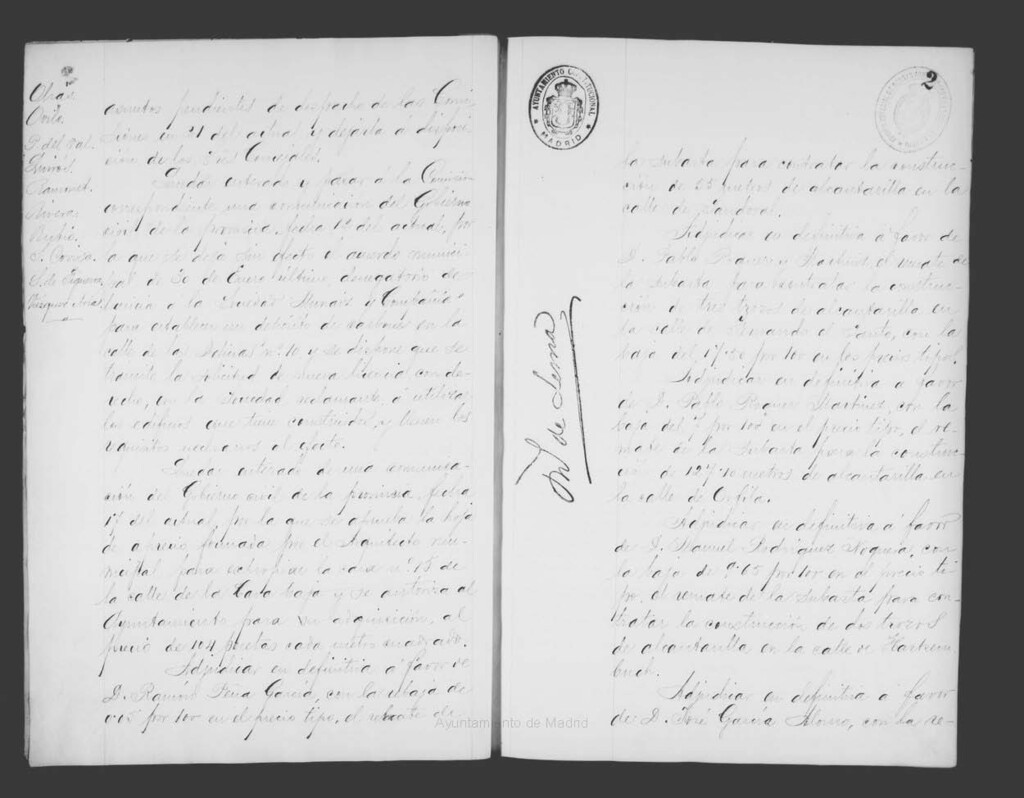 Ortiz
P. del Val.
Rivera
asuntos pendientes de despacho de las Comi-
siones en 21 del actual y dejarla á disposi-
ción de los Sres Concejales.
Quedar enterado y pasar á la Comisión
correspondiente una comunicación del Gobierno
civil de la provincia, fecha 17 del actual, por
la que se deja sin efecto el acuerdo munici-
pal de 30 de Enero último, denegatorio de
licencia á la Sociedad y Compañía
para establecer un depósito de carbones en la
calle de las Salinas nº 10, y se dispone que se
tramite la solicitud de nueva licencia con de-
recho, en la Sociedad reclamante, á utilizar
los edificios que tiene construidos, y llenen los
requisitos necesarios al efecto.
Quedar enterado de una comunica-
ción del Gobierno civil de la provincia, fecha
17 del actual, por la que se aprueba la hoja
de aprecio formada por el Arquitecto mu-
nicipal para expropiar la casa nº 15 de
la calle de la Cava baja y se autoriza al
Ayuntamiento para su adquisición, al
precio de 104 pesetas cada metro cuadrado.
Adjudicar en definitiva á favor de
D. Ramón Peña García, con la rebaja de
0'05 por 100 en el precio tipo, el remate de
AYUNTAMIENTO CONSTITUCIONAL
MADRID
M. de Lema
2
la subasta para contratar la construc-
ción de 55 metros de alcantarilla en la
calle de Sandoval.
Adjudicar en definitiva á favor de
D. Pablo Roquero y Martínez, el remate de
la subasta para contratar la construc-
ción de tres trozos de alcantarilla en
la calle de Fernando el Santo, con la
baja del 17'50 por 100 en los precios tipos.
Adjudicar en definitiva á favor
de D. Pablo Roquero Martínez, con la
baja del 7 por 100 en el precio tipo, el re-
mate de la subasta para la construc-
ción de 127'10 metros de alcantarilla en
la calle de Orfila.
Adjudicar en definitiva á favor
de D. Manuel Rodríguez Noguera, con
la baja de 0'05 por 100 en el precio ti-
po, el remate de la subasta para con-
tratar la construcción de dos trozos
de alcantarilla en la calle de Hartzen-
buch.
Adjudicar en definitiva á favor
de D. José García Alonso, con la re-
Ayuntamiento de Madrid